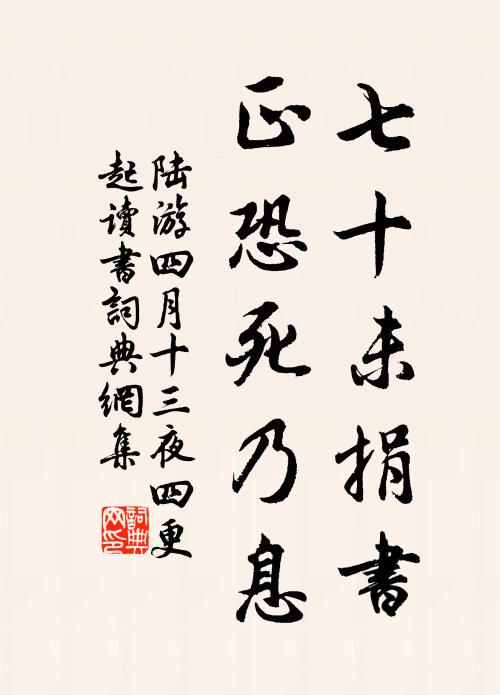 七十未捐書
正恐死乃息
陸游四月十三夜四更
起讀書詞典網集
詞典
网印